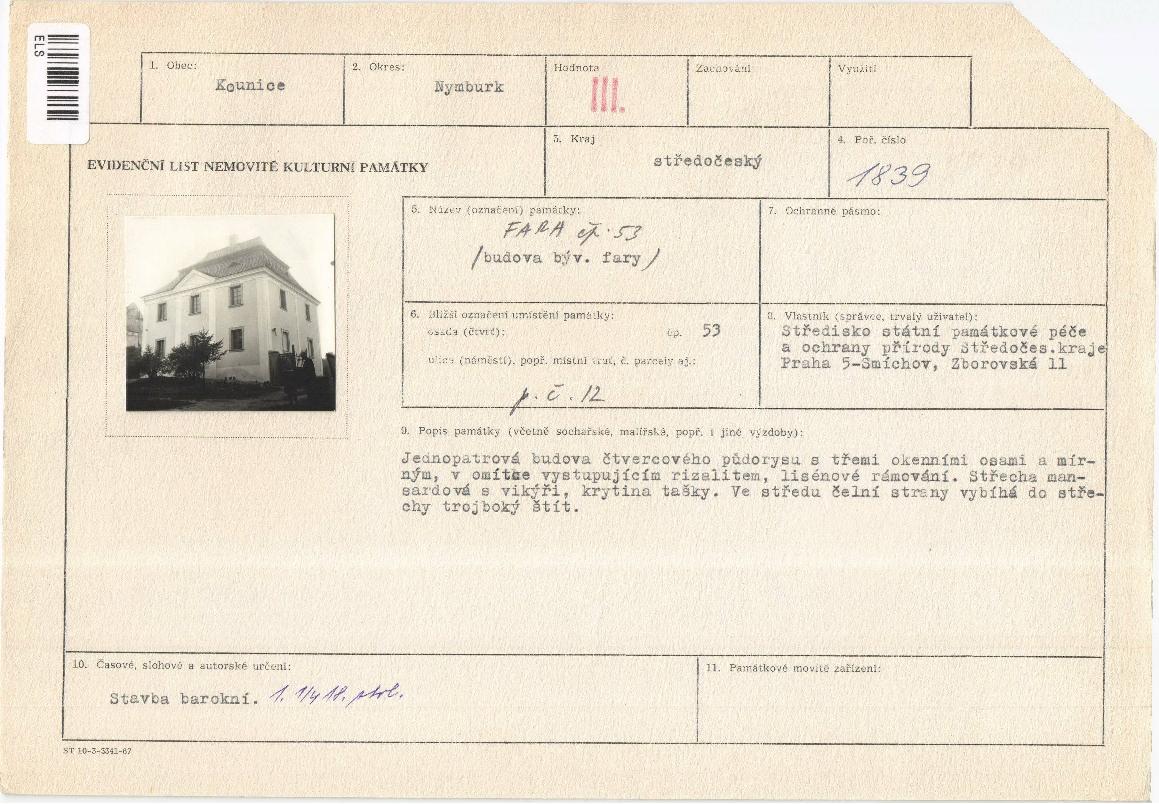 ELS
1. Obec:
Kounice
2. Okres:
Nymburk
Hodnota
III.
Zachování
Využití
EVIDENČNÍ LIST NEMOVITÉ KULTURNÍ PAMÁTKY
3. Kraj
středočeský
4. Poř. číslo
1839
5. Název (označení) památky:
FARA čp. 53
/budova býv. fary/
7. Ochranné pásmo:
6. Bližší označení umístění památky:
osada (čtvrť):
čp. 53
ulice (náměstí), popř. místní trať, č. parcely aj.:
p. č. 12
8. Vlastník (správce, trvalý uživatel):
Středisko státní památkové péče
a ochrany přírody Středočes.kraje
Praha 5-Smíchov, Zborovská 11
9. Popis památky (včetně sochařské, malířské, popř. i jiné výzdoby):
Jednopatrová budova čtvercového půdorysu s třemi okenními osami a mír-
ným, v omítce vystupujícím rizalitem, lisénové rámování. Střecha man-
sardová s vikýři, krytina tašky. Ve středu čelní strany vybíhá do stře-
chy trojboký štít.
10. Časové, slohové a autorské určení:
Stavba barokní. 1. 1/4 18. stol.
11. Památkové movité zařízení:
ST 10-3-3341-67